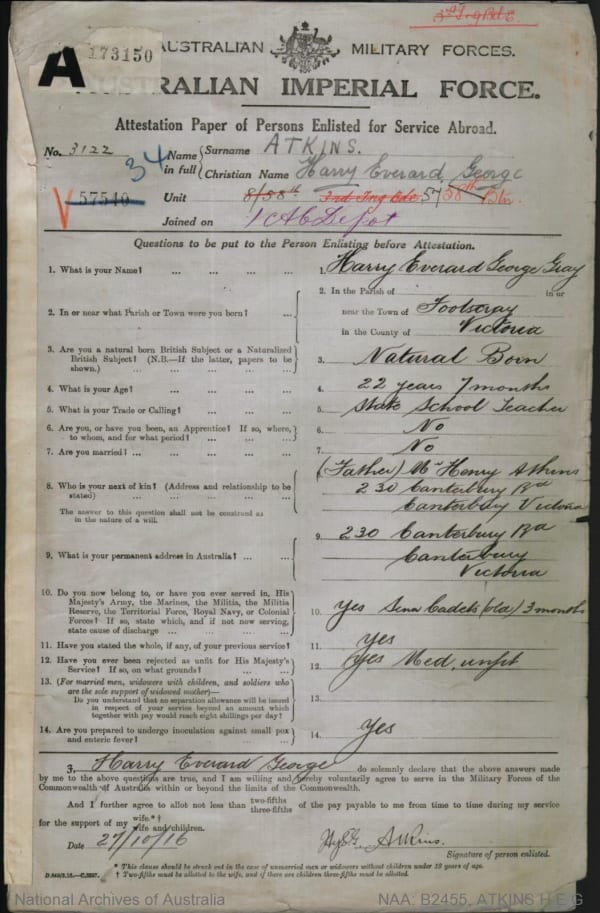 3rd Tng Btl
A 173150
AUSTRALIAN MILITARY FORCES.
AUSTRALIAN IMPERIAL FORCE.
Attestation Paper of Persons Enlisted for Service Abroad.
No. 3122
34
Name in full { Surname ATKINS.
Christian Name Harry Everard George
V 57540
Unit 8/58th 3rd Tng Bde 57/58th Btn.
Joined on 1 A C Depot
Questions to be put to the Person Enlisting before Attestation.
1. What is your Name? ... ... ... ... 1. Harry Everard George Gray
2. In or near what Parish or Town were you born? ... 2. In the Parish of in or
near the Town of Footscray
in the County of Victoria
3. Are you a natural born British Subject or a Naturalized
British Subject? (N.B.—If the latter, papers to be
shown.) ... ... ... ... 3. Natural Born
4. What is your Age? ... ... ... ... 4. 22 years 7 months
5. What is your Trade or Calling? ... ... ... 5. State School Teacher
6. Are you, or have you been, an Apprentice? If so, where,
to whom, and for what period? ... ... ... 6. No
7. Are you married? ... ... ... ... 7. No
8. Who is your next of kin? (Address and relationship to be
stated) ... ... ... ...
The answer to this question shall not be construed as
in the nature of a will.
8. (Father) Mr Henry Atkins
230 Canterbury Rd
Canterbury Victoria
9. What is your permanent address in Australia? ... ... 9. 230 Canterbury Rd
Canterbury
Victoria
10. Do you now belong to, or have you ever served in, His
Majesty's Army, the Marines, the Militia, the Militia
Reserve, the Territorial Force, Royal Navy, or Colonial
Forces? If so, state which, and if not now serving,
state cause of discharge ... ... ... 10. Yes Senr Cadets (old) 3 months
11. Have you stated the whole, if any, of your previous service? 11. yes
12. Have you ever been rejected as unfit for His Majesty's
Service? If so, on what grounds? ... ... 12. Yes Med. unfit
13. (For married men, widowers with children, and soldiers who
are the sole support of widowed mother)—
Do you understand that no separation allowance will be issued
in respect of your service beyond an amount which
together with pay would reach eight shillings per day? 13.
14. Are you prepared to undergo inoculation against small pox
and enteric fever? ... ... ... 14. Yes
I, Harry Everard George do solemnly declare that the above answers made
by me to the above questions are true, and I am willing and hereby voluntarily agree to serve in the Military Forces of the
Commonwealth of Australia within or beyond the limits of the Commonwealth.
And I further agree to allot not less than two-fifths three-fifths of the pay payable to me from time to time during my service
for the support of my wife.*†
wife and children.
Date 27/10/16
HyEG. Atkins.
Signature of person enlisted.
* This clause should be struck out in the case of unmarried men or widowers without children under 18 years of age.
† Two-fifths must be allotted to the wife, and if there are children three-fifths must be allotted.
National Archives of Australia
NAA: B2455, ATKINS H E G